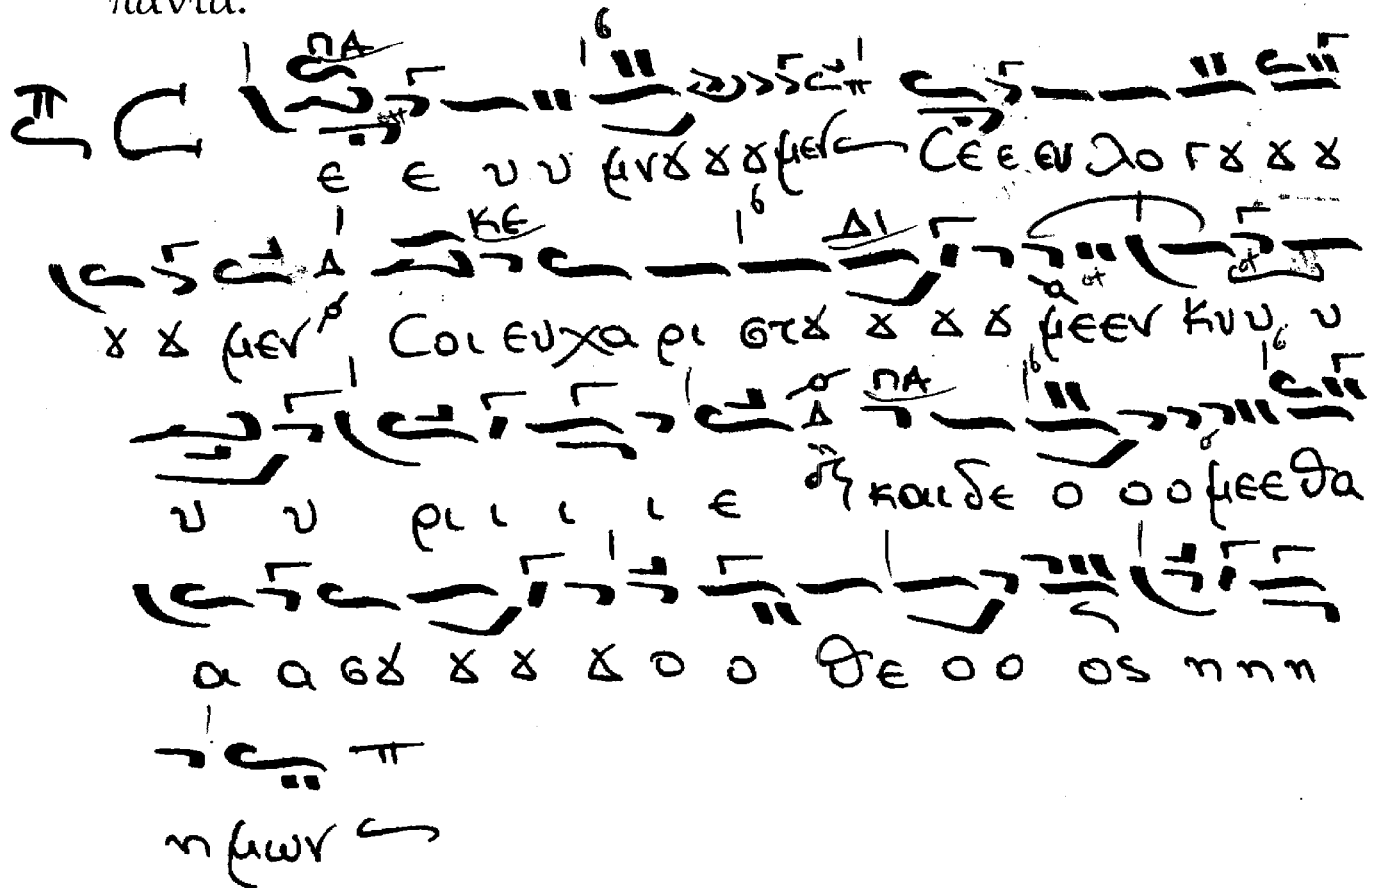 πάντα.
πΑ
Σε ε υ υ μνȣ ȣ ȣ μεν Σε ε ευ λο γ ȣ ȣ ȣ
ΚΕ ΔΙ
ȣ ȣ μεν Σοι ευχα ρι στȣ ȣ ȣ ȣ με εν Κυ υ υ
πΑ
υ υ ρι ι ι ι ε και δε ο ο ο με ε θα
α α σȣ ȣ ȣ ȣ ο ο Θε ο ο ος η η η
η μων